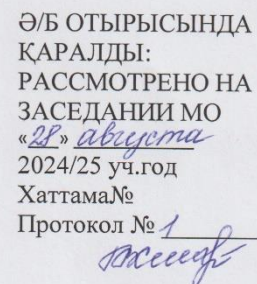 Ә/Б ОТЫРЫСЫНДА
ҚАРАЛДЫ:
РАССМОТРЕНО НА
ЗАСЕДАНИИ МО
«28» августа
2024/25 уч.год
Хаттама№
Протокол № 1